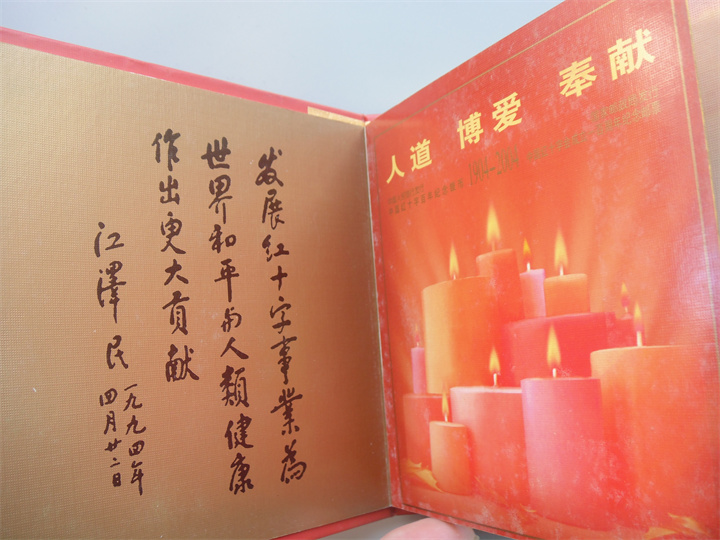 发展红十字事業為
世界和平与人類健康
作出更大貢献
江澤民
一九九四年
四月廿二日
人道 博爱 奉献
1904-2004